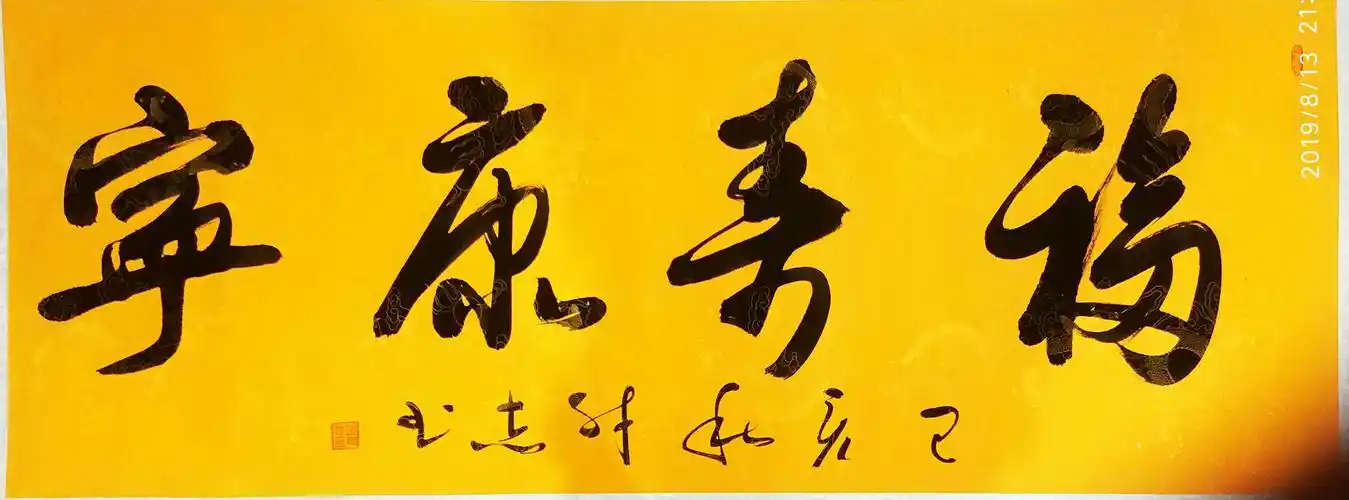 福寿康宁
己亥秋 志书
2019/8/13 21: